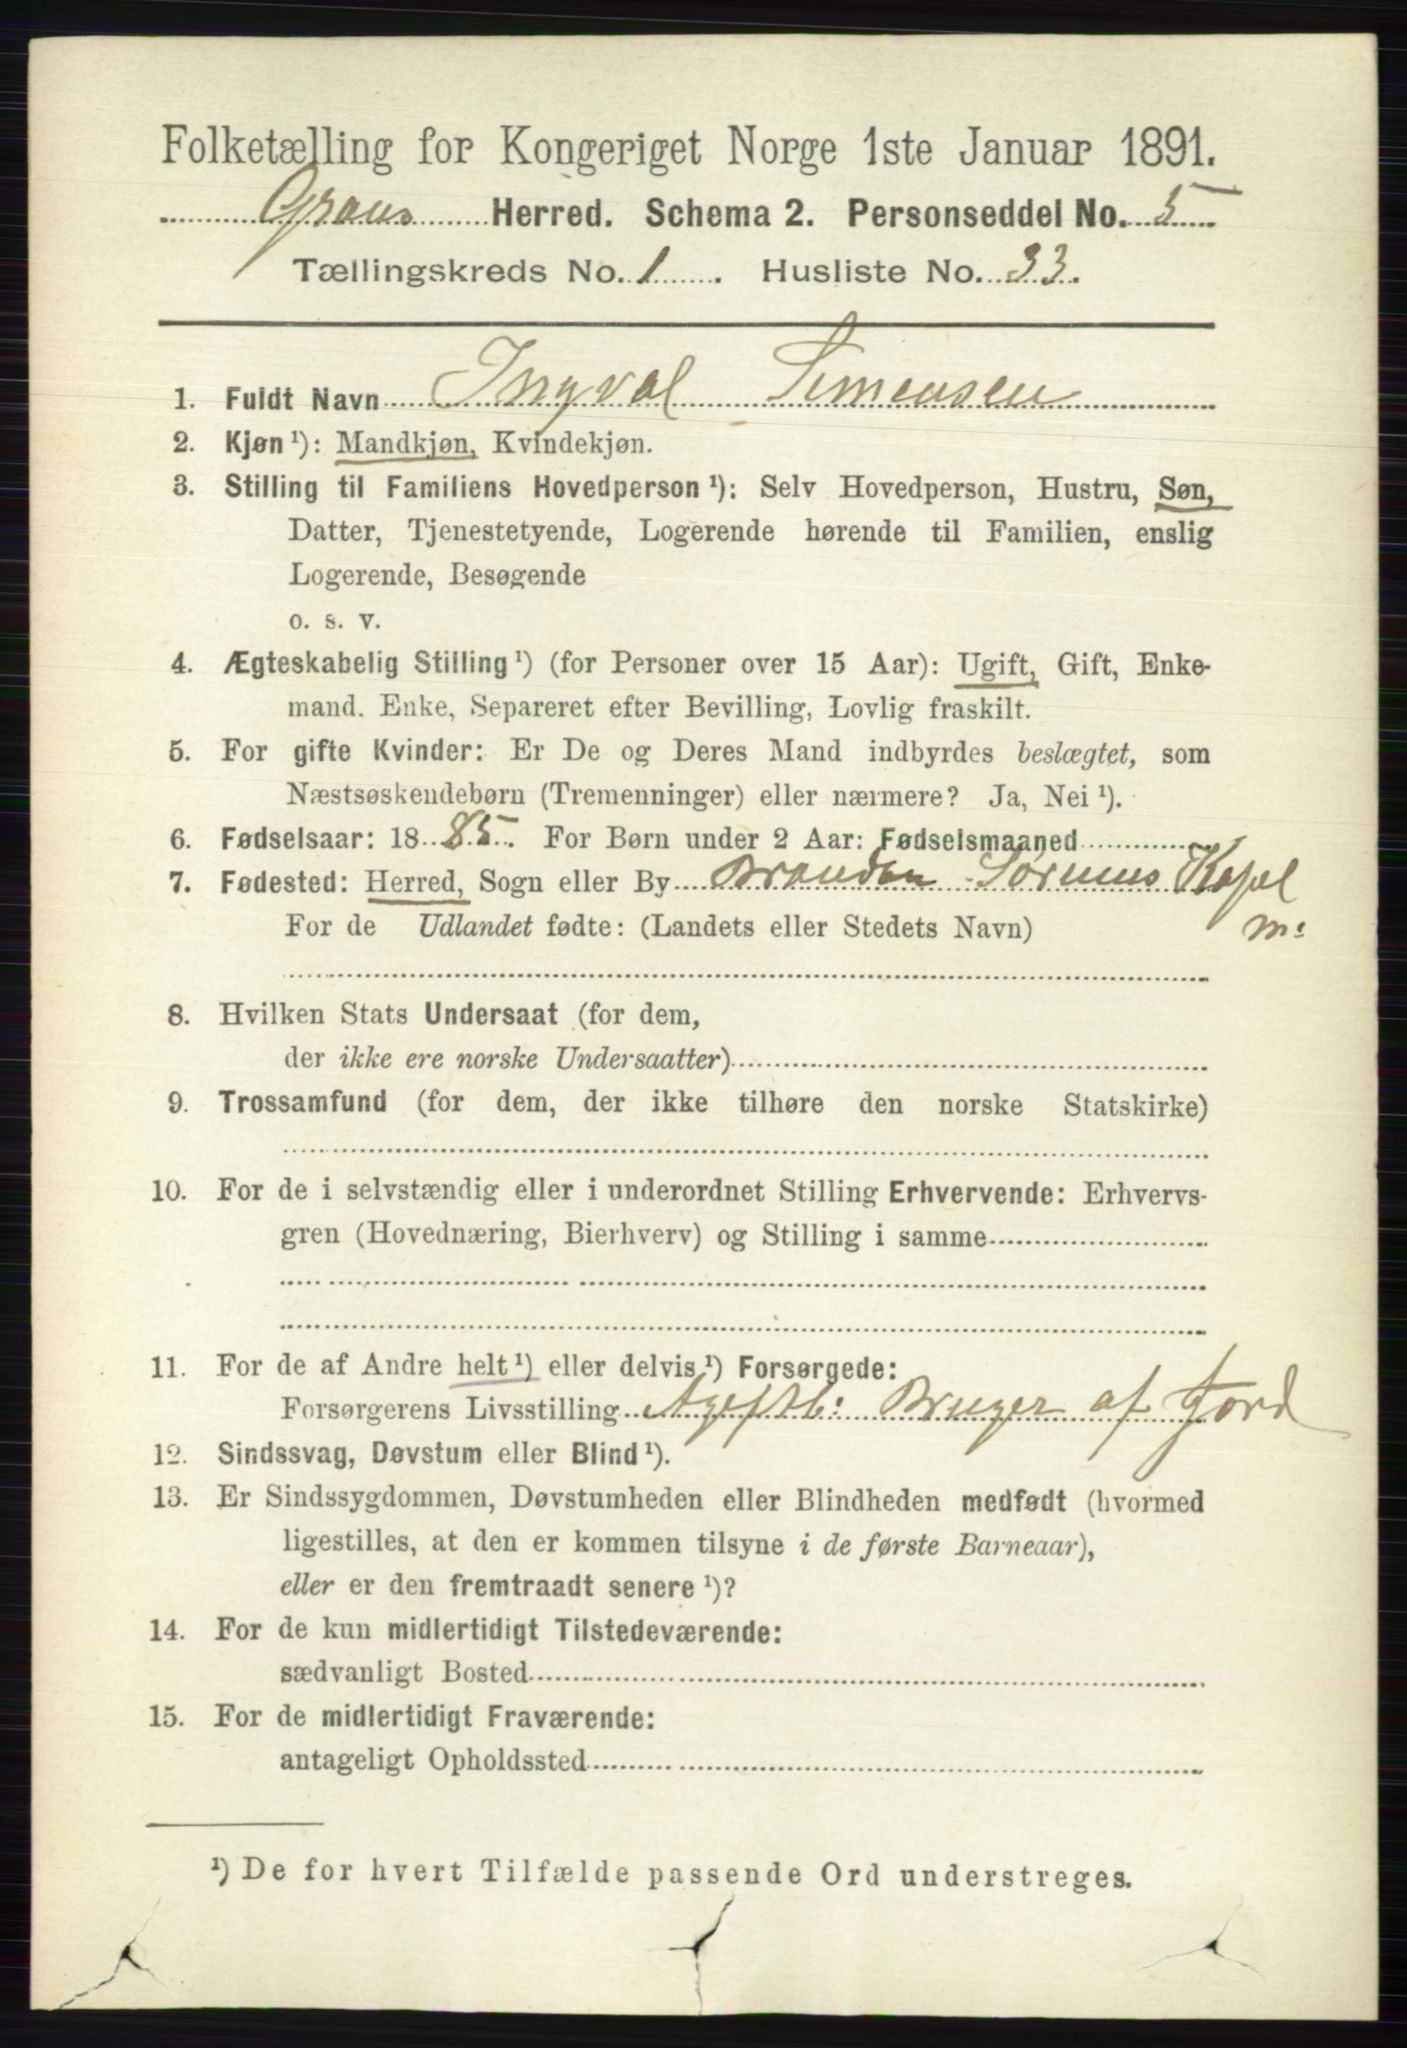 Folketælling for Kongeriget Norge 1ste Januar 1891.
Grans Herred. Schema 2. Personseddel No. 5
Tællingskreds No. 1. Husliste No. 33.
1. Fuldt Navn Ingval Simensen
2. Kjøn ¹): Mandkjøn, Kvindekjøn.
3. Stilling til Familiens Hovedperson ¹): Selv Hovedperson, Hustru, Søn,
Datter, Tjenestetyende, Logerende hørende til Familien, enslig
Logerende, Besøgende
o. s. v.
4. Ægteskabelig Stilling ¹) (for Personer over 15 Aar): Ugift, Gift, Enke-
mand. Enke, Separeret efter Bevilling, Lovlig fraskilt.
5. For gifte Kvinder: Er De og Deres Mand indbyrdes beslægtet, som
Næstsøskendebørn (Tremenninger) eller nærmere? Ja, Nei ¹).
6. Fødselsaar: 1885. For Børn under 2 Aar: Fødselsmaaned
7. Fødested: Herred, Sogn eller By Brandbu Sørums Kapel
For de Udlandet fødte: (Landets eller Stedets Navn)
8. Hvilken Stats Undersaat (for dem,
der ikke ere norske Undersaatter)
9. Trossamfund (for dem, der ikke tilhøre den norske Statskirke)
10. For de i selvstændig eller i underordnet Stilling Erhvervende: Erhvervs-
gren (Hovednæring, Bierhverv) og Stilling i samme
11. For de af Andre helt ¹) eller delvis ¹) Forsørgede:
Forsørgerens Livsstilling Bruger af Jord
12. Sindssvag, Døvstum eller Blind ¹).
13. Er Sindssygdommen, Døvstumheden eller Blindheden medfødt (hvormed
ligestilles, at den er kommen tilsyne i de første Barneaar),
eller er den fremtraadt senere ¹)?
14. For de kun midlertidigt Tilstedeværende:
sædvanligt Bosted
15. For de midlertidigt Fraværende:
antageligt Opholdssted
¹) De for hvert Tilfælde passende Ord understreges.